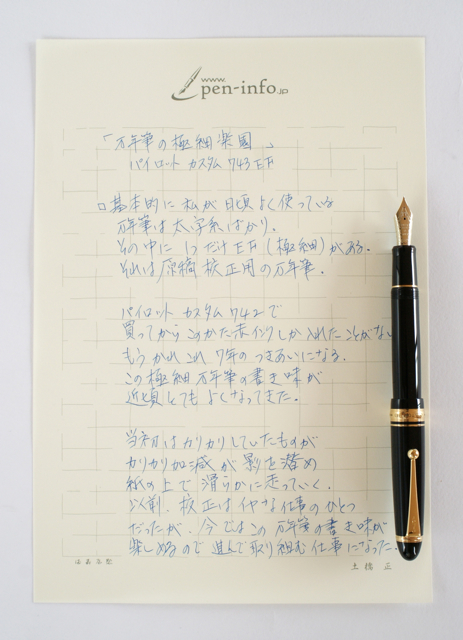 www.
pen-info.jp
「万年筆の極細楽園」
パイロット カスタム 743 EF
□ 基本的に私が日頃よく使っている
万年筆は太字系ばかり.
その中に 1つだけ EF (極細) がある.
それは原稿校正用の万年筆.
パイロット カスタム 742 で
買ってからこのかた赤インクしか入れたことがない
もうかれこれ 7年のつきあいになる.
この極細万年筆の書き味が
近頃とてもよくなってきた.
当初はカリカリしていたものが
カリカリ加減が影を潜め
紙の上で滑らかに走っていく.
以前. 校正はイヤな仕事のひとつ
だったが. 今ではこの万年筆の書き味が
楽しめるので進んで取り組む仕事になった.
土橋 正